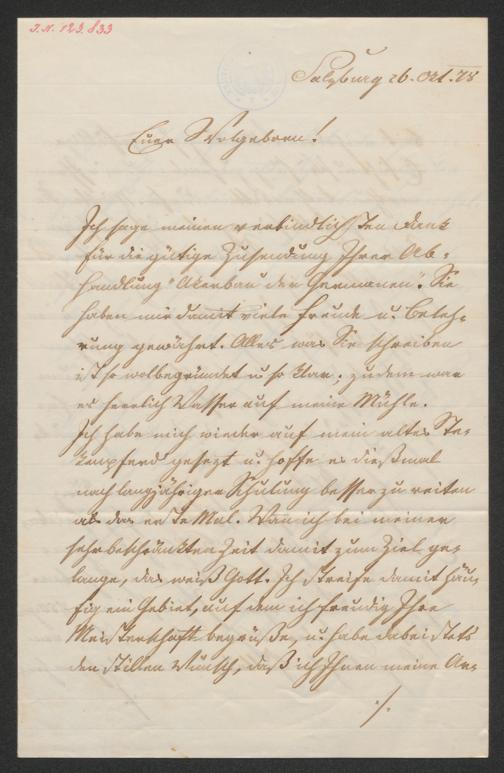 I. N. 123.833
Salzburg 26. Okt. 78
Euer Wolgeboren!
Ich sage meinen verbindlichsten Dank
für die gütige Zusendung Ihrer Ab-
handlung "Akerbau der Germanen". Sie
haben mir damit viele Freude u. Beleh-
rung gewährt. Alles was Sie schreiben
ist so wolbegründet u. so klar, zudem war
es herrlich Wasser auf meine Mühle.
Ich habe mich wieder auf mein altes Ste-
kenpferd gesezt u. hoffe es dießmal
nach langjähriger Schulung besser zu reiten
als das erste Mal. Wan ich bei meiner
sehr beschränkten Zeit damit zum Ziel ge-
lange, das weiß Gott. Ich streife damit häu-
fig ein Gebiet, auf dem ich freudig Ihre
Meisterschaft begrüße, u. habe dabei stets
den stillen Wunsch, daß ich Ihnen meine Ar-
./.